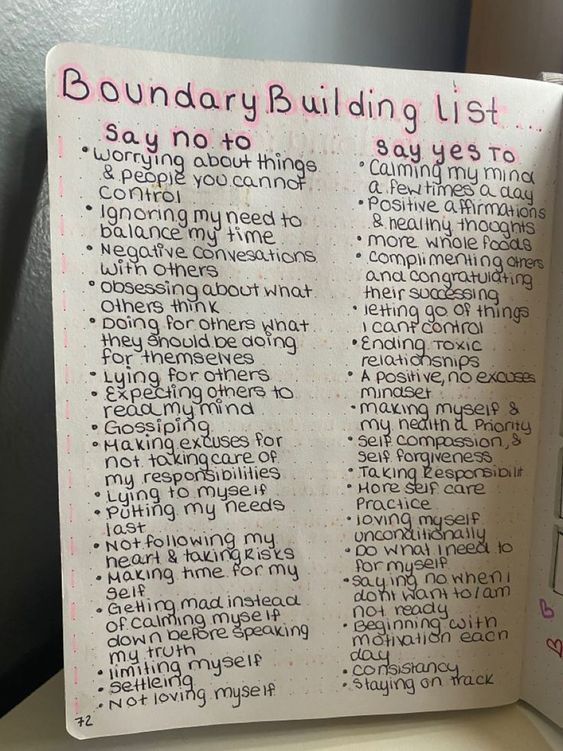 Boundary Building list ....
Say no to
• Worrying about things
& people you cannot
control
• Ignoring my need to
balance my time
• Negative convesations
with others
• Obsessing about what
others think
• Doing for others what
they should be doing
for themselves
• Lying for others
• Expecting others to
read my mind
• Gossiping
• Making excuses for
not taking care of
my responsibilities
• Lying to myself
• Putting my needs
last
• Not following my
heart & taking Risks
• Making time for my
self
• Getting mad instead
of calming myself
down before speaking
my truth
• limiting myself
• settleing
• Not loving myself
72
Say yes To
• Calming my mind
a few times a day
• Positive affirmations
& healthy thoughts
• more whole foods
• complimenting others
and congratulating
their successing
• letting go of things
I cant control
• Ending Toxic
relationships
• A positive, no excuses
mindset
• making myself &
my health a Priority
• self compassion, &
self forgiveness
• Taking Responsibilit
• More self care
Practice
• loving myself
unconditionally
• Do what I need to
for myself
• saying no when I
dont want to/am
not ready
• Beginning with
motivation each
day
• consistancy
• staying on track